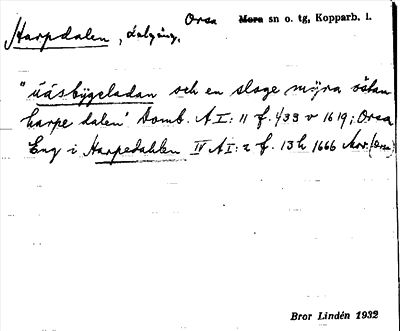 Harpdalen, Orsa Mora sn o. tg, Kopparb. l.
"uäsbÿgeladan och en sloge mÿra östan
harpe dalen" Domb. A I: 11 f. 433 v 1619; Orsa
Eng i Harpedahlen IV A I: 2 f. 13 h 1666 Mor. (Orsa)
Bror Lindén 1932